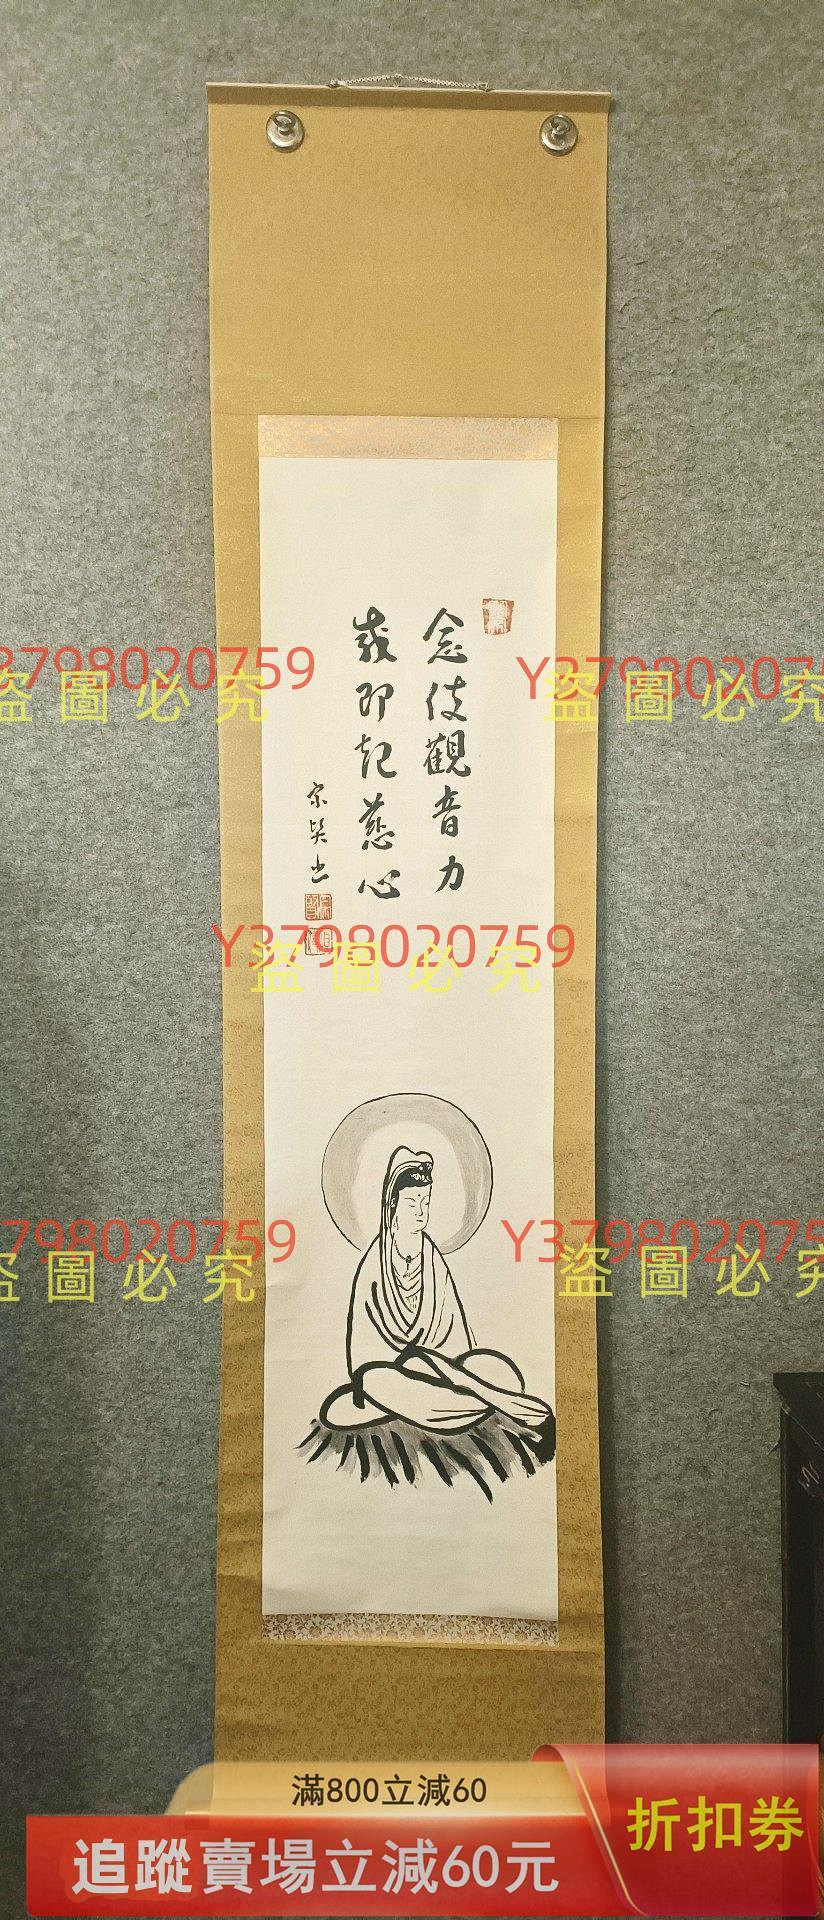 念彼觀音力
咸即起慈心
宗賢書
Y3798020759
盜圖必究
Y3798020759
盜圖必究
Y3798020759
盜圖必究
Y3798020759
盜圖必究
Y3798020759
盜圖必究
滿800立減60
追蹤賣場立減60元
折扣券